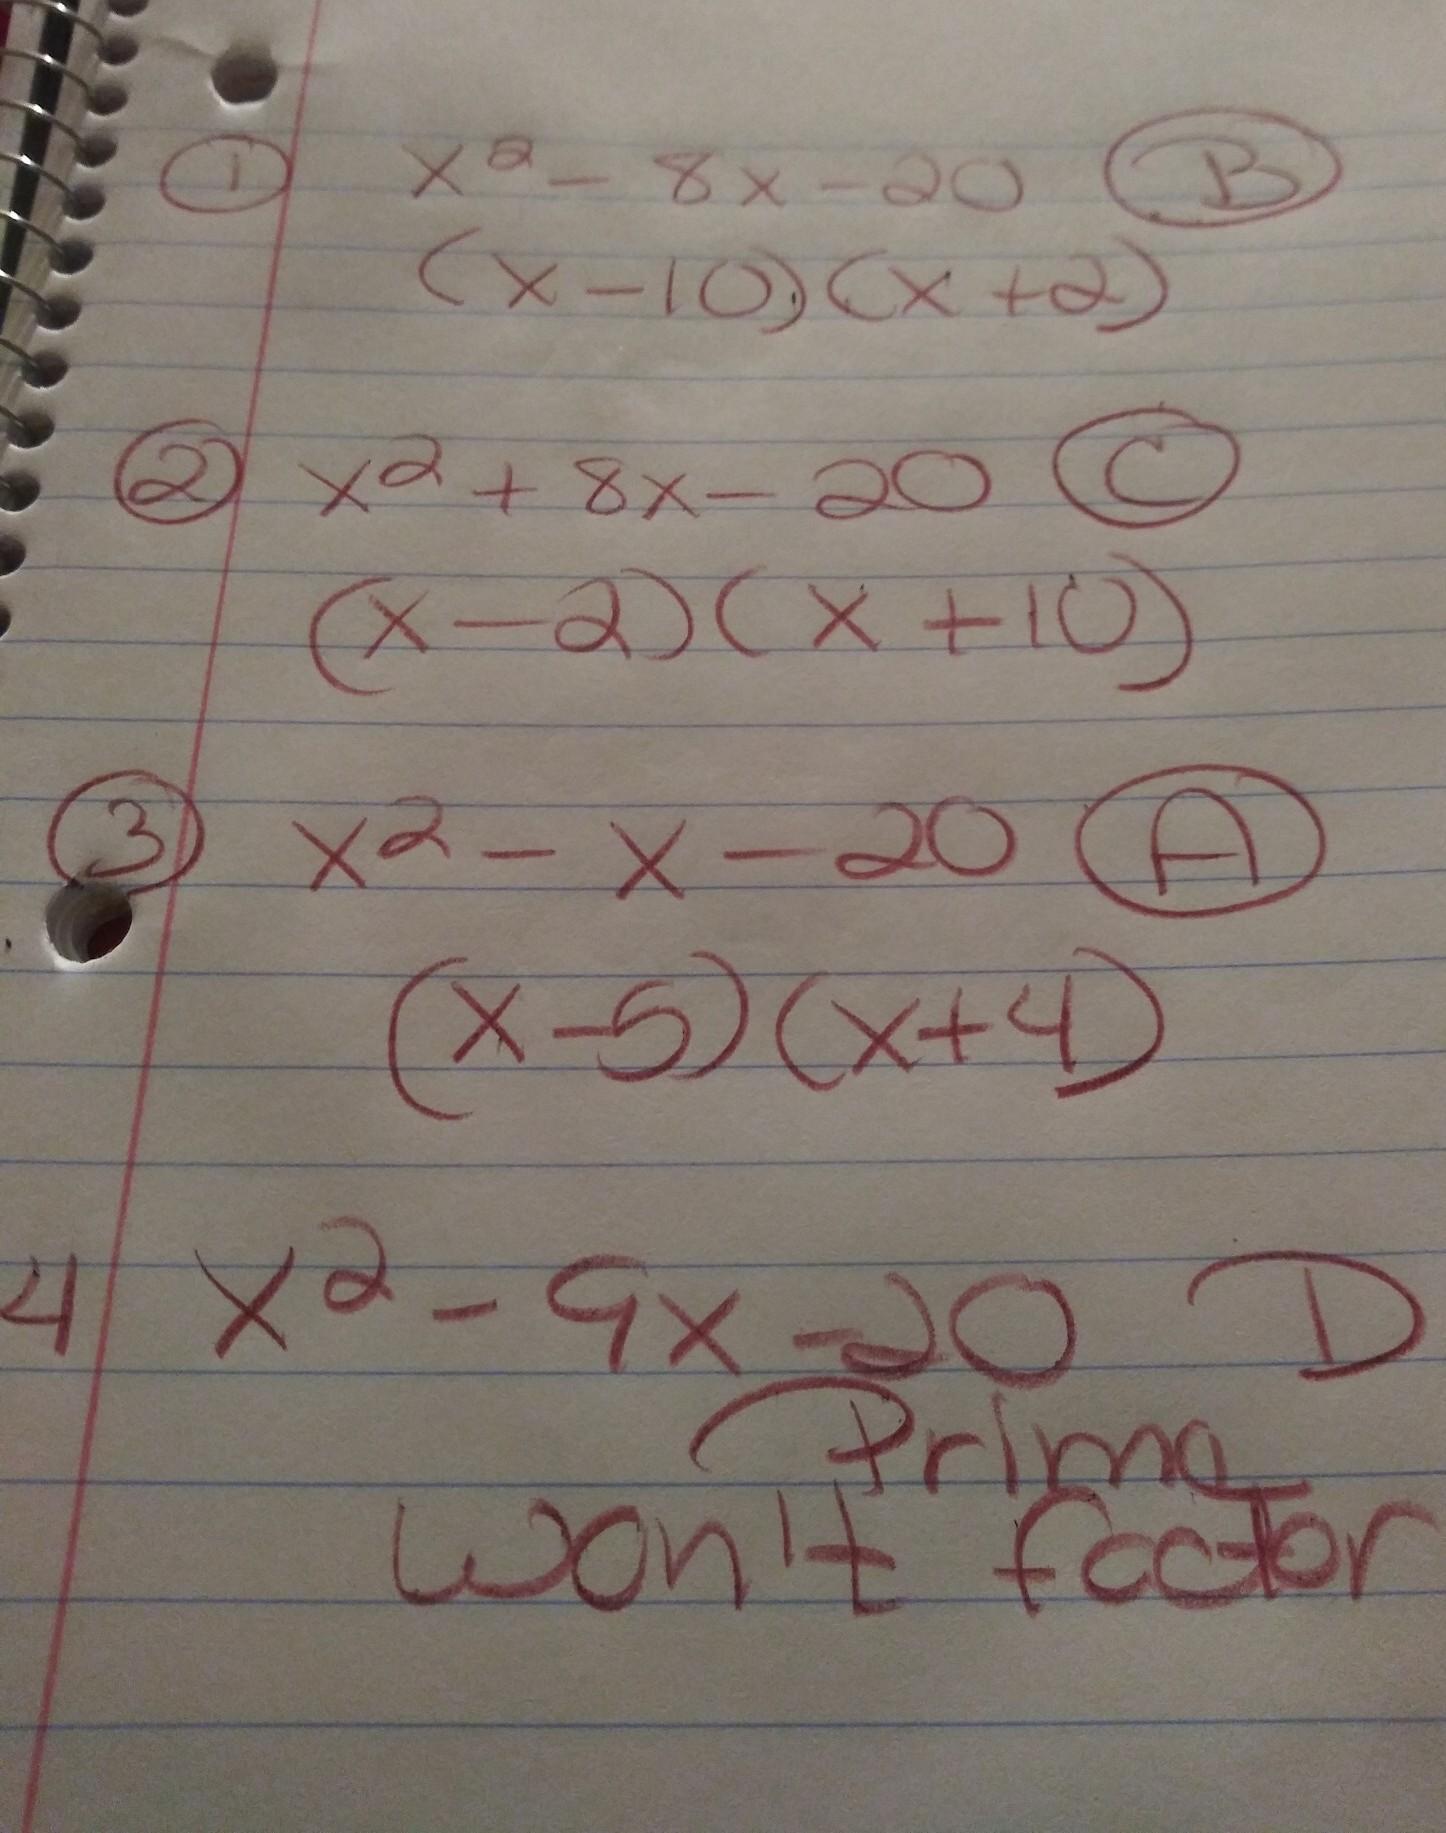 1 x² - 8x - 20 B
(x - 10)(x + 2)
2 x² + 8x - 20 C
(x - 2)(x + 10)
3 x² - x - 20 A
(x - 5)(x + 4)
4 x² - 9x - 20 D
Prime
won't factor